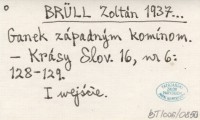 BRÜLL Zoltán 1937...
Ganek západným komínom.
– Krásy Slov. 16, nr 6:
128-129.
I wejście.